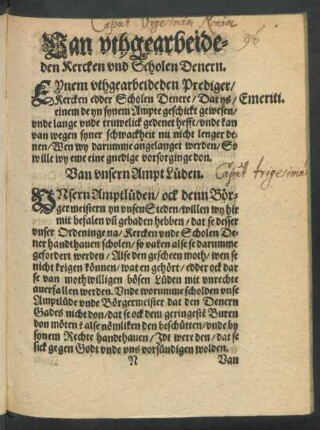 Caput vigesimum Nonum
96
Van vthgearbeide-
den Kercken vnd Scholen Denern.
EYnem vthgearbeideden Prediger/
Kercken edder Scholen Denere/ Dat ys/ Emeriti.
einem de yn synem Ampte geschickt gewesen/
vnde lange vnde truwelick gedenet hefft/ vnde kan
van wegen syner schwackheit nu nicht lenger de-
nen/ Wen wy darumme angelanget werden/ So
wille wy eme eine gnedige vorsorginge don.
Van vnsern Ampt Lüden.
Caput trigesimū
VNsern Amptlüden/ ock denn Bör-
germeistern yn vnsen Steden/ willen wy hir
mit befalen vñ gebaden hebben/ dat se desser
vnser Ordeninge na/ Kercken vnde Scholen De-
ner handthauen scholen/ so vaken alse se darumme
gefordert werden/ Alse den gescheen moth/ wen se
nicht krigen können/ wat en gehört/ edder ock dar
se van mothwilligen bösen Lüden mit vnrechte
auerfallen werden. Vnde worumme scholden vnse
Amptlüde vnde Börgermeister dat den Denern
Gades nicht don/ dat se ock dem geringesten Buren
don möten? alse nömliken den beschütten/ vnde by
synem Rechte handthauen/ Idt were den/ dat se
sick gegen Godt vnde vns vorsündigen wolden.
N Van